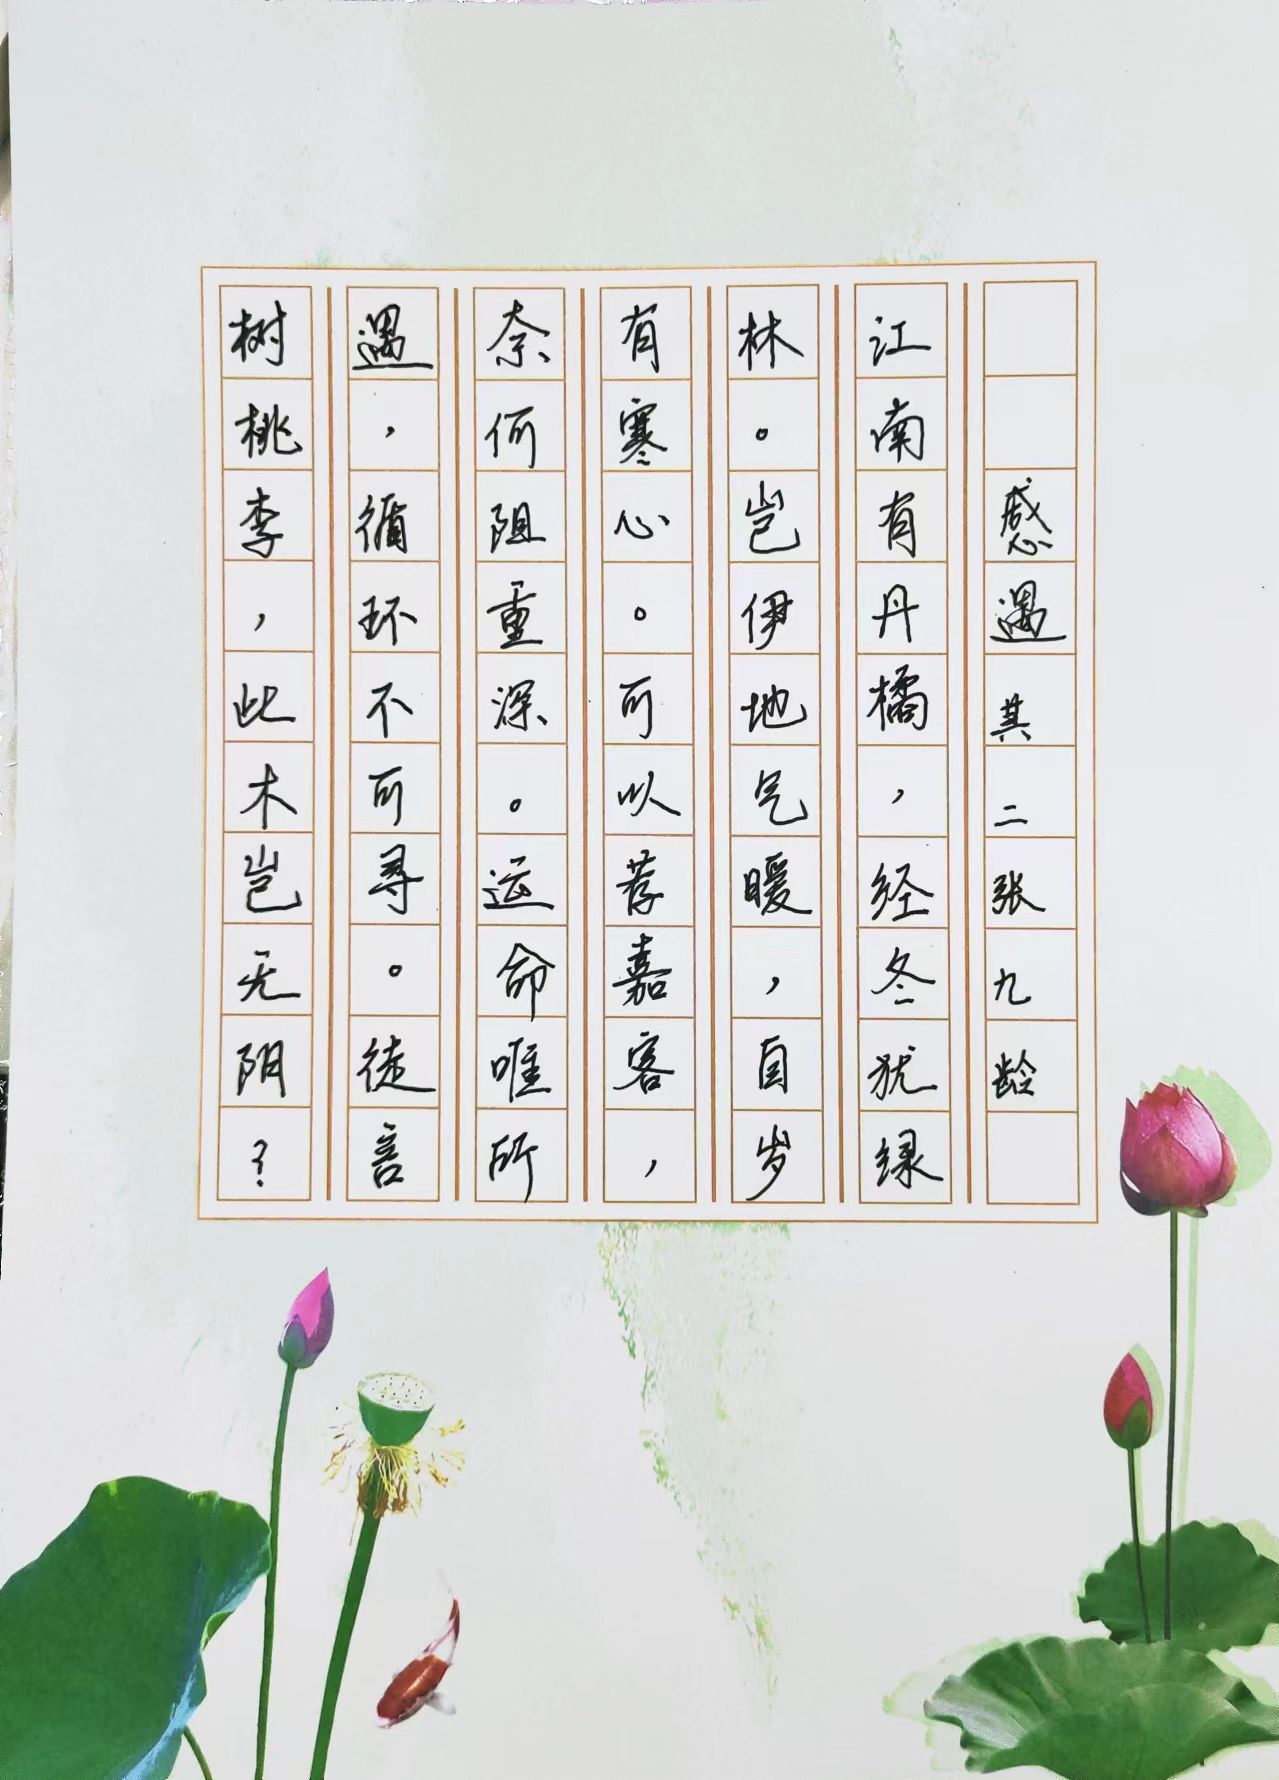 感遇其二张九龄
江南有丹橘，经冬犹绿
林。岂伊地气暖，自岁
有寒心。可以荐嘉客，
奈何阻重深。运命唯所
遇，循环不可寻。徒言
树桃李，此木岂无阴？